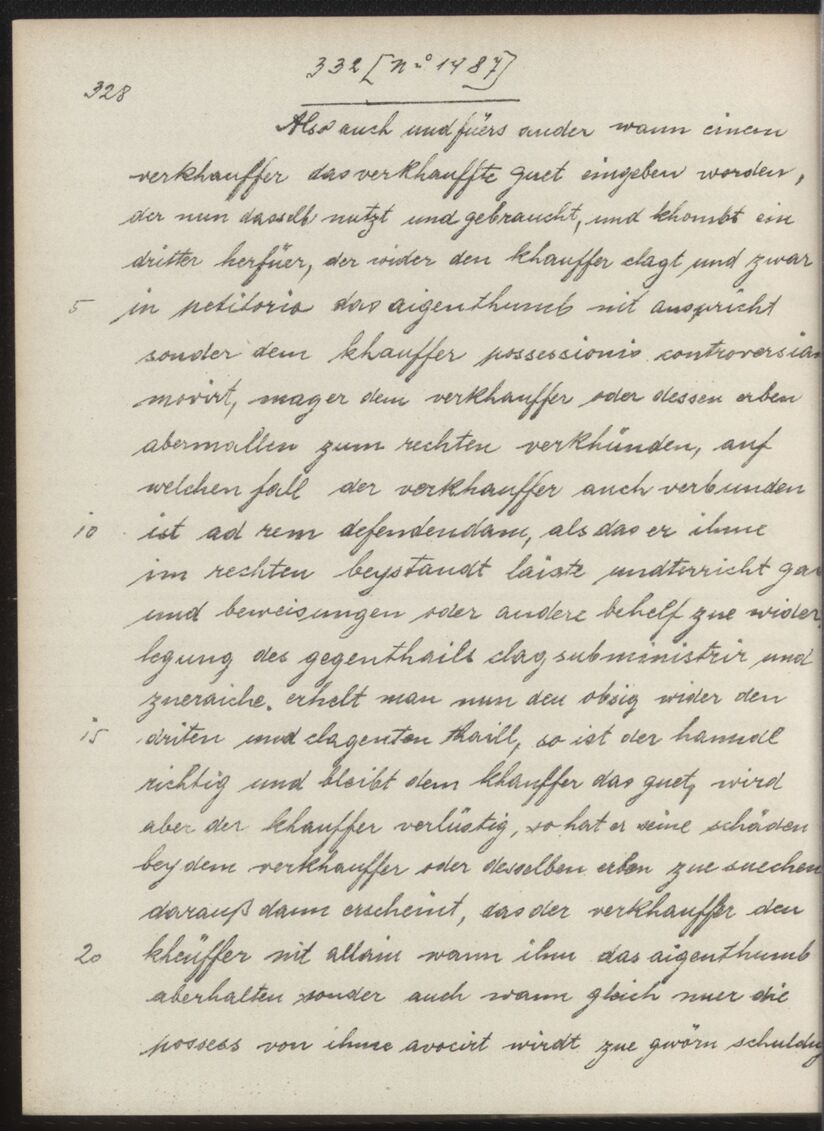 332 [No 1487]
328
Also auch und fürs ander wann einem
verkhauffer das verkhauffte guet eingeben worden,
der nun dasselb nutzt und gebraucht, und khombt ein
dritter herfüer, der wider den khauffer clagt und zwar
5 in petitorio das aigenthumb nit anspricht
sonder dem khauffer possessionis controversiam
movirt, mager dem verkhauffer oder dessen erben
abermallen zum rechten verkhünden, auf
welchen fall der verkhauffer auch verbunden
10 ist ad rem defendendam, als das er ihme
im rechten beystandt laiste undterricht
und beweisungen oder andere behelf zue wider
legung des gegenthails clag subministrir und
zueraiche. erhelt man nun den obsig wider den
15 driten und clagenten thaill, so ist der hanndl
richtig und bleibt dem khauffer das guet, wird
aber der khauffer verlüstig, so hat er seine schäden
bey dem verkhauffer oder desselben erben zue suechen
darauß dann erscheint, das der verkhauffer den
20 kheüffer nit allain wann ihm das aigenthumb
aberhalten sonder auch wann gleich nuer die
possess von ihme avocirt wirdt zue gwörn schuldig